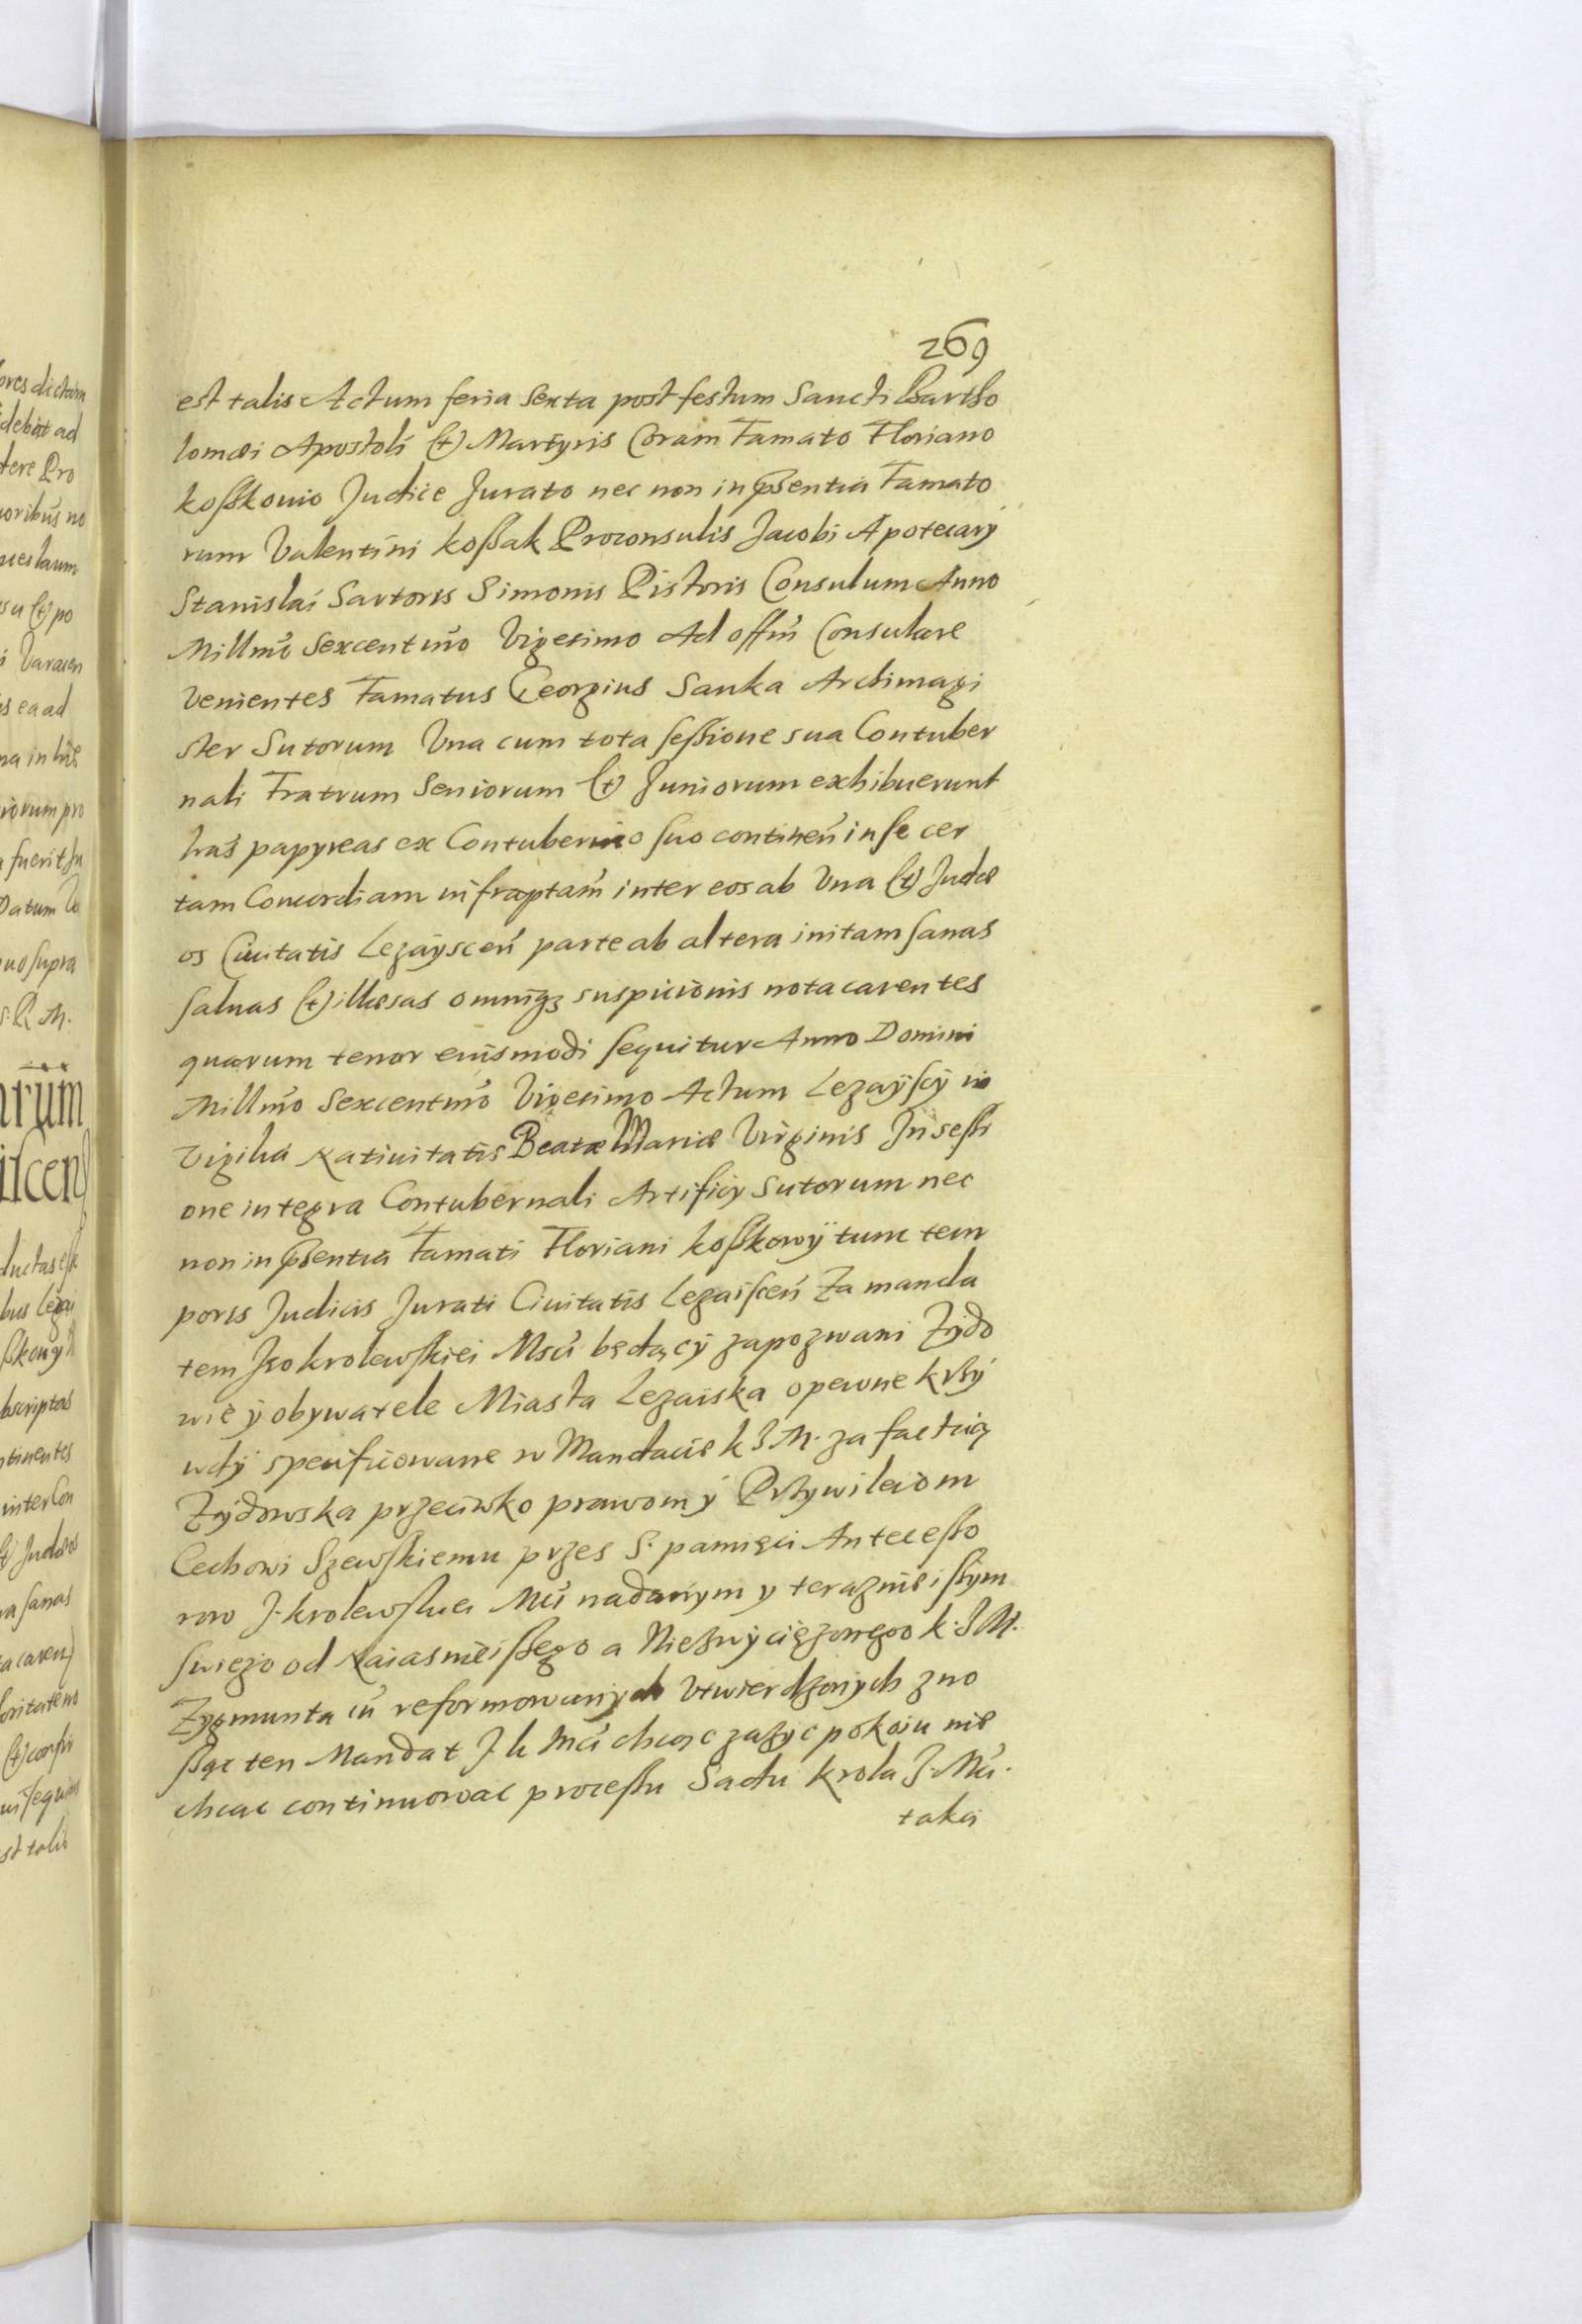 269
est talis Actum feria Sexta post festum Sancti Bartho
lomæi Apostoli (et) Martyris Coram Famato Floriano
koßkouio Judice Jurato nec non in pñsentia Famato
rum Valentini koßak Proconsulis Jacobi Apotecarÿ
Stanislai Sartoris Simonis Pistoris Consulum Anno
Millmo Sexcentmo Vigesimo Ad offm Consulare
venientes Famatus Georgius Sanka Archimagi
ster Sutorum Vna cum tota sessione sua Contuber
nali Fratrum Seniorum (et) Juniorum exhibuerunt
lras papyreas ex Contubernio suo continen in se cer
tam Concordiam infraptam inter eos ab Vna (et) Judæ
os Ciuitatis Lezaÿscen parte ab altera initam sanas
saluas (et) illæsas omniqz suspicionis nota carentes
quarum tenor eiusmodi sequitur Anno Domini
Millmo Sexcentmo Vigesimo Actum Lezaÿscÿ in
vigilia Natiuitatis Beatæ Mariæ Virginis In sessi
one integra Contubernali Artificÿ Sutorum nec
non in pñsentia Famati Floriani koßkowÿ tunc tem
poris Judicis Jurati Ciuitatis Lezaiscen Za manda
tem Jeo krolewskiei Msci będącÿ zapozwani Zÿdo
wie ÿ obywatele Miasta Lezaiska o pewne krzÿ
wdÿ specificowane w Mandacie k J M. za factią
Zÿdowska przeciwko prawom ÿ Przywileiom
Cechowi Szewskiemu przes S. pamięci Antecesso
row J. krolewskiei Mci nadanym y teraznieiszym
swiezo od Naiasnieiszego a Niezwÿciężonego k. J M.
Zygmunta iii reformowanych Vtwierdzonÿch zno
sząc ten Mandat J k Mci chcąc zażyc pokoiu nie
chcac continuowac processu Sadu krola J. Mci.
taką